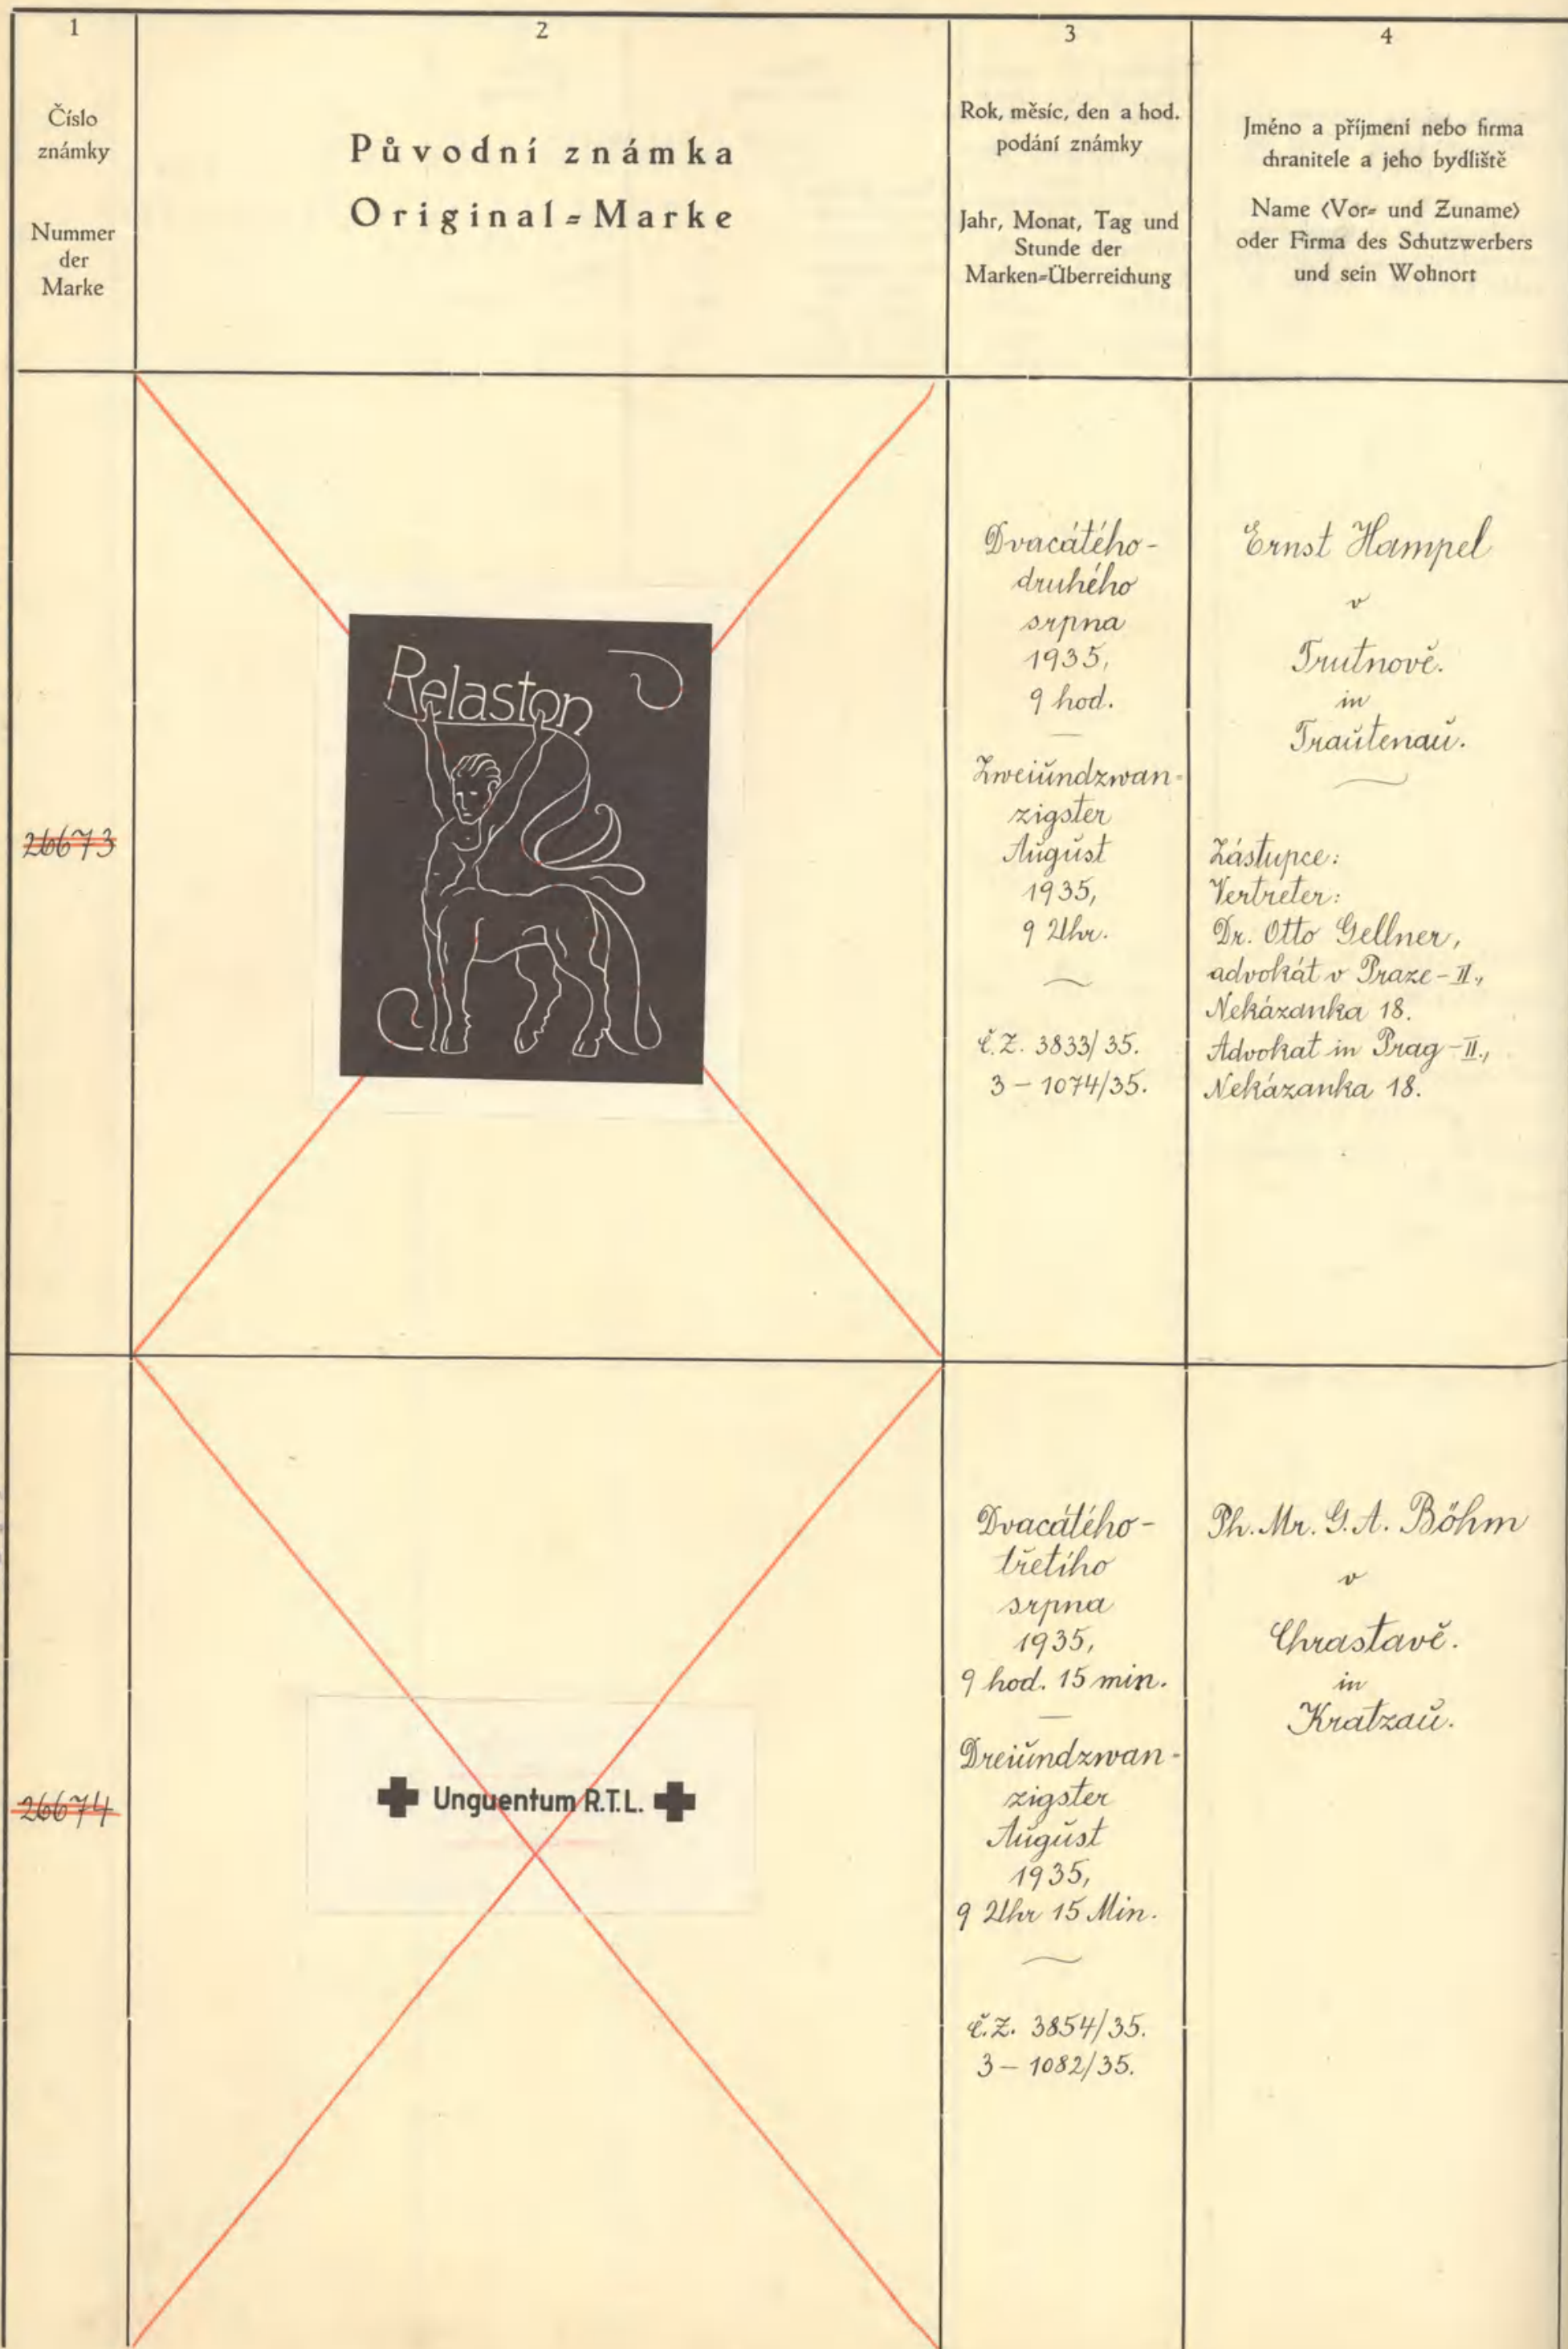 1
Číslo
známky
Nummer
der
Marke
2
Původní známka
Original=Marke
3
Rok, měsíc, den a hod.
podání známky
Jahr, Monat, Tag und
Stunde der
Marken=Überreichung
4
Jméno a příjmení nebo firma
chranitele a jeho bydliště
Name (Vor= und Zuname)
oder Firma des Schutzwerbers
und sein Wohnort
26673
Relaston
Dvacátého-
druhého
srpna
1935,
9 hod.
Zweiundzwan-
zigster
August
1935,
9 Uhr.
Č.Z. 3833/35.
3 – 1074/35.
Ernst Hampel
v
Trutnově.
in
Trautenau.
Zástupce:
Vertreter:
Dr. Otto Gellner,
advokát v Praze-II.,
Nekázanka 18.
Advokat in Prag-II.,
Nekázanka 18.
26674
Unguentum R.T.L.
Dvacátého-
třetího
srpna
1935,
9 hod. 15 min.
Dreiundzwan-
zigster
August
1935,
9 Uhr 15 Min.
Č.Z. 3854/35.
3 – 1082/35.
Ph. Mr. G. A. Böhm
v
Chrastavě.
in
Kratzau.